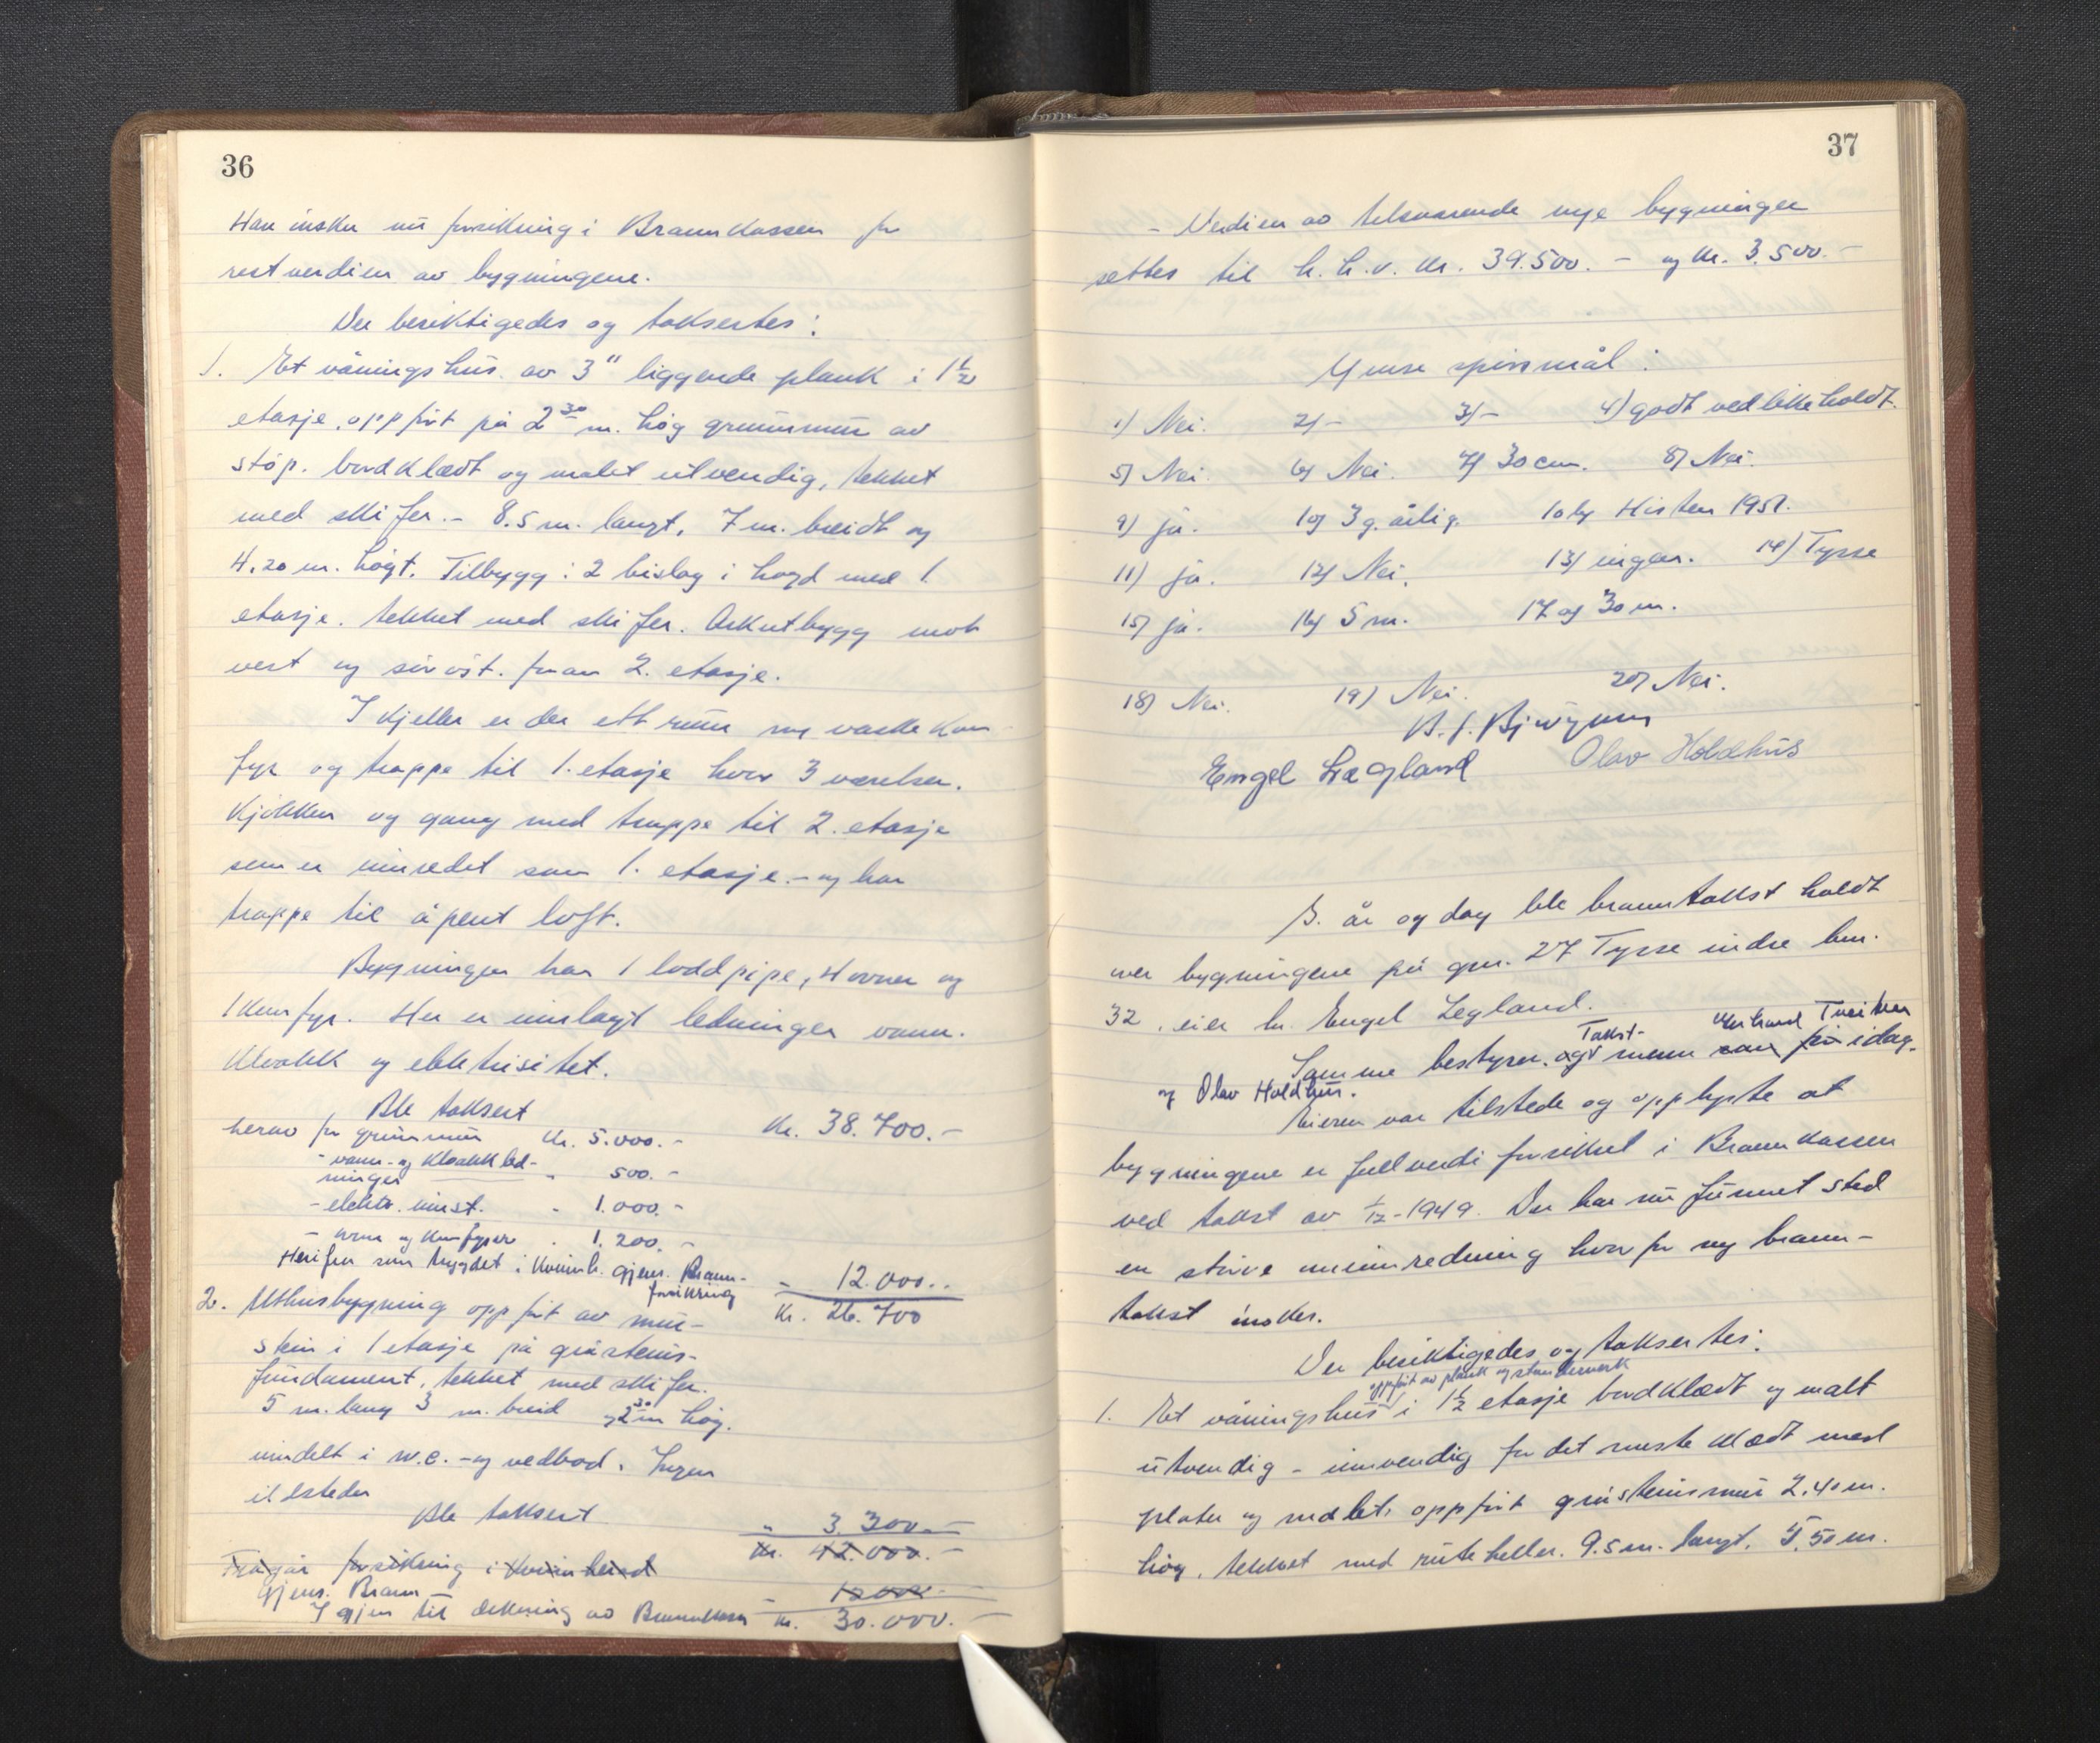 36
Han ønsker nu forsikring i Brannkassen for
restverdien av bygningene.
Der besiktigedes og taksertes:
1. Et våningshus av 3" liggende plank i 1½
etasje, oppført på 2³⁰ m. høg grunnmur av
støp. bordklædt og malt utvendig, tekket
med skifer. - 8.5 m. langt, 7 m. breidt og
4.20 m. høgt. Tilbygg: 2 bislag i høgd med 1.
etasje. tekket med skifer. Arkutbygg mot
vest og sørøst. for 2. etasje.
I kjeller er der ett rum m/ vaskekom
fyr og trappe til 1. etasje hvor 3 værelser.
Kjøkken og gang med trappe til 2. etasje
som er innredet som 1. etasje. - og har
trappe til åpent loft.
Bygningen har 1 loddpipe, 4 ovner og
1 komfyr. Her er innlagt ledninger vann.
Kloakk og elektrisitet.
Ble taksert Kr. 38.700.-
herav for grunnmur Kr. 5.000.-
- vann- og kloakkled-
ninger " 500.-
- elektr. innst. - 1.000.-
- ovner og komfyrer . 1.200.-
Herifra som trygdet i Kvinnh. gjens. Brann-
forsikring - 12.000..
Kr. 26.700
2. Uthusbygning oppført av mur-
stein i 1 etasje på gråsteins-
fundament, tekket med skifer.
5 m. lang 3 m. breid og 2³⁰ m høg.
inndelt i w.c. - og vedbod. Ingen
ildsteder
Ble taksert " 3.300.-
Kr. 42.000.-
Frågår forsikring i Kvinnherad
gjens. Brann - 12000 -
I gjen til dekning av Brannkassen Kr. 30.000.-
37
- Verdien av tilsvarende nye bygninger
settes til h.h.v. Kr. 39.500.- og Kr. 3.500.-
Ymse spørsmål:
1) Nei. 2) - 3) - 4) godt vedlikeholdt.
5) Nei. 6) Nei. 7) 30 cm. 8) Nei.
9) ja. 10) 3 g. årlig. 10b) Høsten 1951.
11) ja. 12) Nei. 13) ingen. 14) Tysse
15) ja. 16) 5 m. 17 og 30 m.
18) Nei. 19) Nei. 20) Nei.
Engel Lægland Olav Holdhus
S. år og dag ble branntakst holdt
over bygningene på gnr. 27 Tysse indre bnr.
32, eier hr. Engel Legland.
Samme bestyrer. og Takst-menn som før idag.
og Olav Holdhus.
Eieren var tilstede og opplyste at
bygningene er fullverdi forsikret i Brannkassen
ved takst av 1/12-1949. Der har nu funnet sted
en større ominnredning hvorfor ny brann-
takst ønskes.
Der besiktigedes og taksertes:
oppført av plank og stenderverk
1. Et våningshus i 1½ etasje bordklædt og malt
utvendig - innvendig for det meste klædt med
plater og malet, oppført gråsteinsmur 2.40 m.
høg, tekket med rutheller. 9.5 m. langt, 5.50 m.